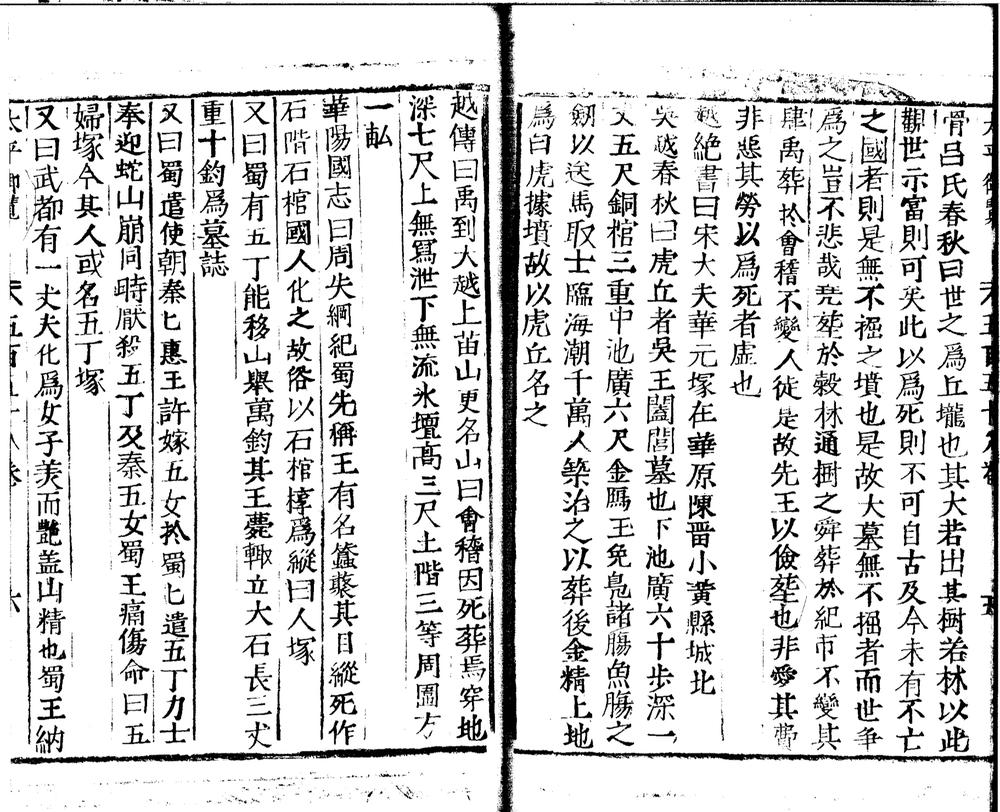 骨吕氏春秋曰世之爲丘壠也其大若出其樹若林以此
觀世示富則可矣此以爲死則不可自古及今未有不亡
之國者則是無不掘之墳也是故大墓無不掘者而世爭
爲之豈不悲哉堯葬於穀林通樹之舜葬於紀市不變其
肆禹葬於會稽不變人徒是故先王以儉葬也非愛其費
非惡其勞以爲死者虚也
越絶書曰宋大夫華元塚在華原陳晋小黄縣城北
吳越春秋曰虎丘者吳王闔閭墓也下池廣六十步深一
丈五尺銅棺三重中池廣六尺金鴈玉凫鳧諸腸魚腸之
劒以送馬取士臨海潮千萬人築治之以葬後金精上地
爲白虎據墳故以虎丘名之
越傳曰禹到大越上苗山更名山曰會稽因死葬焉穿地
深七尺上無寫泄下無流水壇髙三尺土階三等周圓方
一畝
華陽國志曰周失綱紀蜀先稱王有名蠶䕺其目縱死作
石階石棺國人化之故俗以石棺椁爲縱目人塚
又曰蜀有五丁能移山舉萬鈞其王薨輙立大石長三丈
重十鈞爲墓誌
又曰蜀遣使朝秦匕惠王許嫁五女於蜀匕遣五丁力士
奉迎蛇山崩同時厭殺五丁及秦五女蜀王痛傷命曰五
婦塚今其人或名五丁塚
又曰武都有一丈夫化爲女子美而艶盖山精也蜀王納
太平御覽 五百五十八卷 六